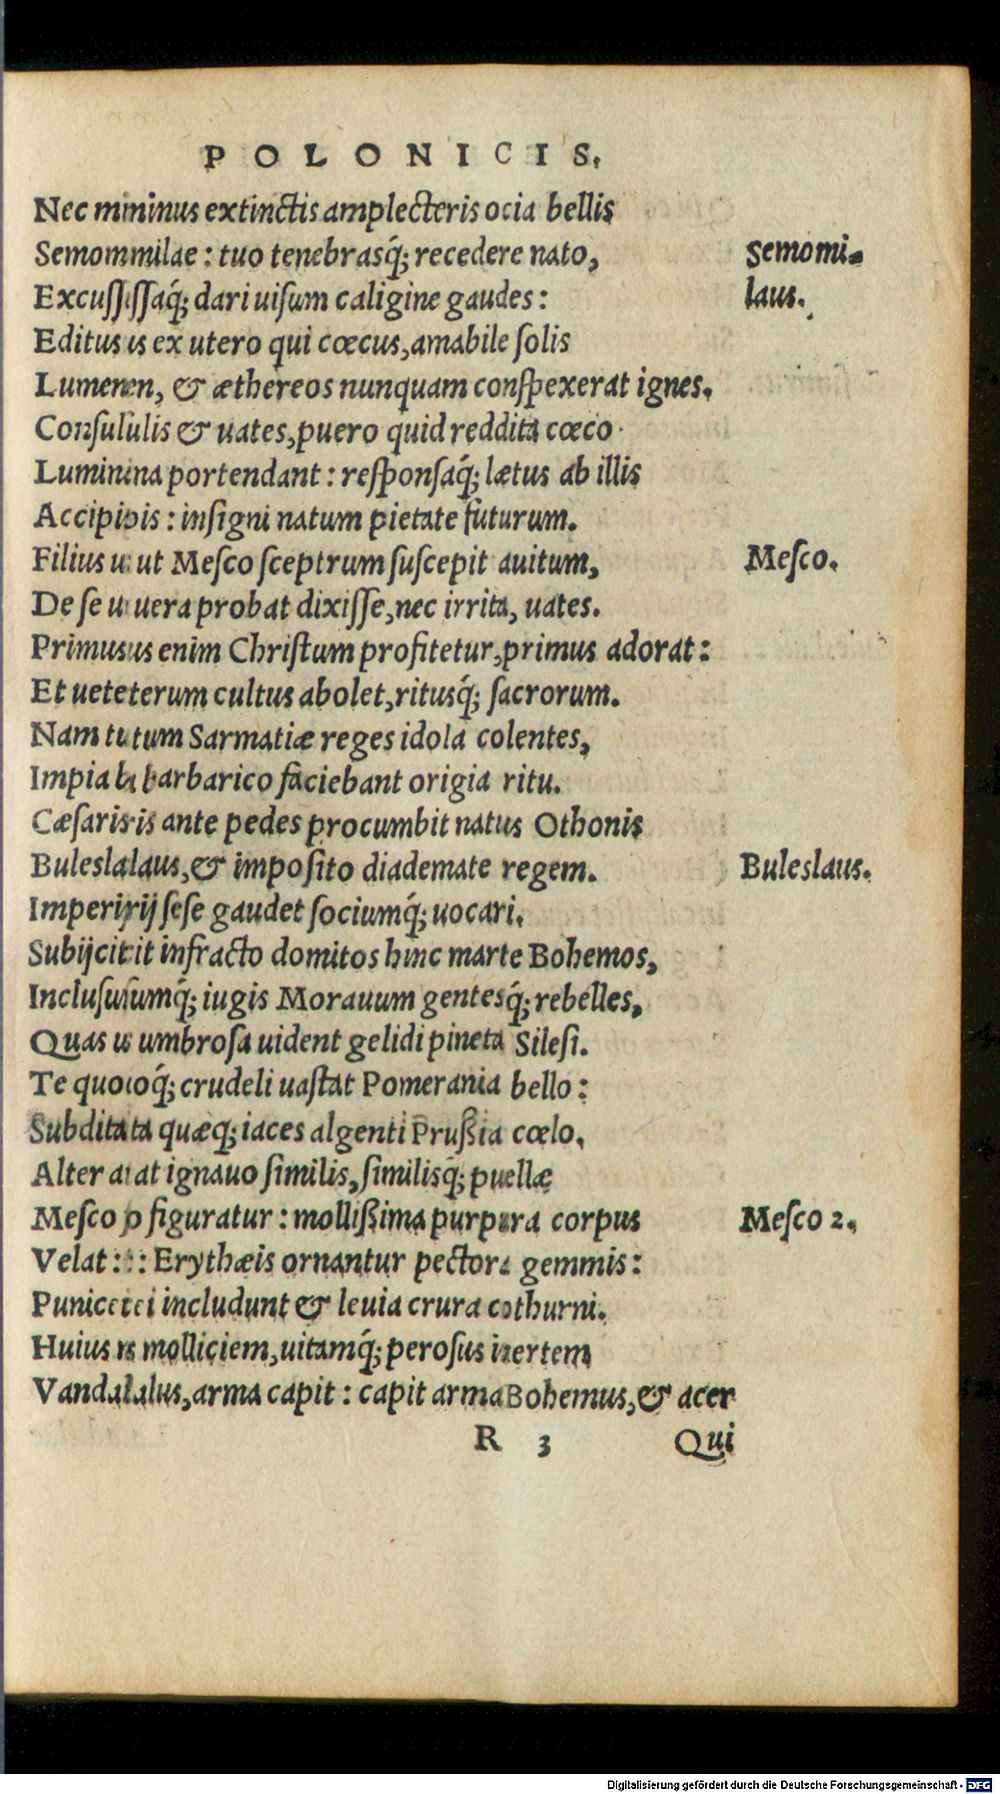 POLONICIS.
Nec mininus extinctis amplecteris ocia bellis
Semommilae : tuo tenebrasq́; recedere nato,
Semomi-
Excuſſiſſaq́; dari uiſum caligine gaudes :
laus.
Editus is ex utero qui cœcus, amabile ſolis
Lumeren, & æthereos nunquam conſpexerat ignes.
Conſululis & uates, puero quid reddita cœco
Luminina portendant : reſponſaq́; lætus ab illis
Accipiois : inſigni natum pietate futurum.
Filius u ut Meſco ſceptrum ſuſcepit auitum,
Meſco.
De ſe u uera probat dixiſſe, nec irrita, uates.
Primusus enim Chriſtum profitetur, primus adorat :
Et ueteterum cultus abolet, ritusq́; ſacrorum.
Nam tutum Sarmatiæ reges idola colentes,
Impia b barbarico faciebant origia ritu.
Cæſarisis ante pedes procumbit natus Othonis
Buleslalaus, & impoſito diademate regem.
Buleslaus.
Imperijrij ſeſe gaudet ſociumq́; uocari.
Subijcitit infracto domitos hinc marte Bohemos,
Incluſuſumq́; iugis Morauum gentesq́; rebelles,
Quas u umbroſa uident gelidi pineta Sileſi.
Te quooq́; crudeli uaſtat Pomerania bello :
Subditata quæq; iaces algenti Prußia cœlo.
Alter aat ignauo ſimilis, ſimilisq́; puellæ
Meſco p figuratur : mollißima purpura corpus
Meſco 2.
Velat : : Erythæis ornantur pectora gemmis :
Puniceei includunt & leuia crura cothurni.
Huius s molliciem, uitamq́; peroſus inertem
Vandalalus, arma capit : capit arma Bohemus, & acer
R 3
Qui
Digitalisierung gefördert durch die Deutsche Forschungsgemeinschaft - DFG